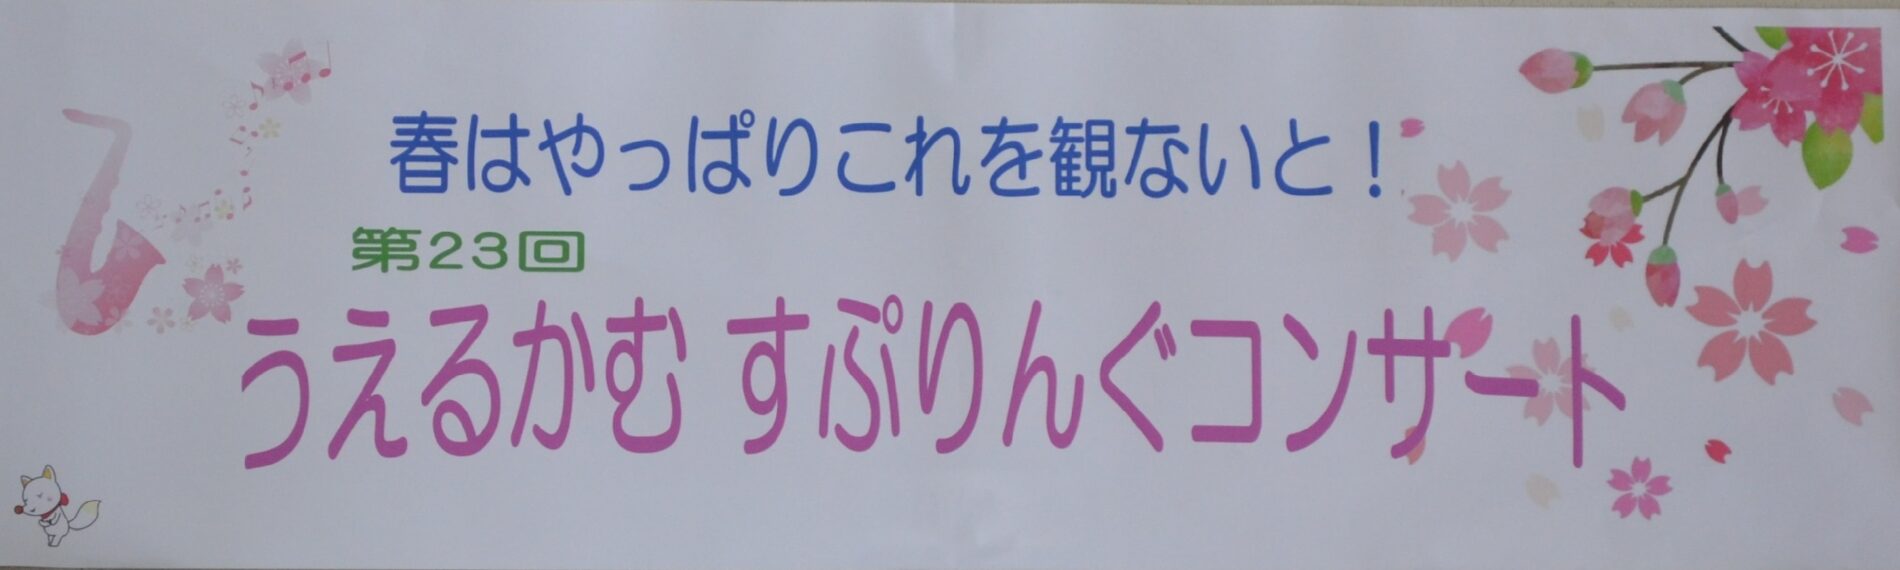 春はやっぱりこれを観ないと！
第23回
うえるかむ すぷりんぐコンサート